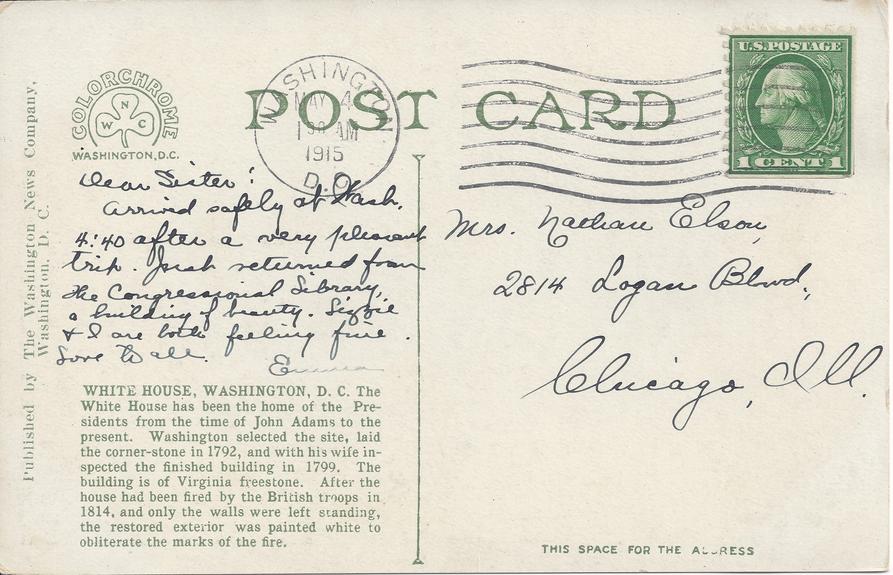 POST CARD
COLORCHROME
W N C
WASHINGTON, D.C.
WASHINGTON
MAY 4
AM
1915
D.C.
U.S. POSTAGE
1 CENT 1
Published by The Washington News Company,
Washington, D. C.
Dear Sister:
Arrived safely at Wash.
4:40 after a very pleasant
trip. Just returned from
the Congressional Library,
a building of beauty. Lizzie
& I are both feeling fine.
Love to all.
Emma
Mrs. Nathan Elson,
2814 Logan Blvd.,
Chicago, Ill.
WHITE HOUSE, WASHINGTON, D. C. The
White House has been the home of the Pre-
sidents from the time of John Adams to the
present. Washington selected the site, laid
the corner-stone in 1792, and with his wife in-
spected the finished building in 1799. The
building is of Virginia freestone. After the
house had been fired by the British troops in
1814, and only the walls were left standing,
the restored exterior was painted white to
obliterate the marks of the fire.
THIS SPACE FOR THE ADDRESS